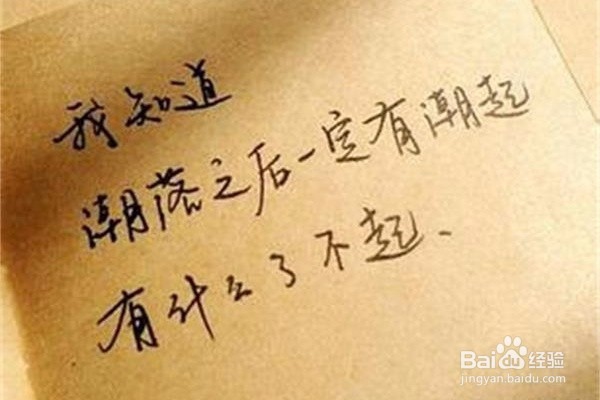 我知道
潮落之后一定有潮起
有什么了不起、
Bai du 百度经验
jingyan.baidu.com